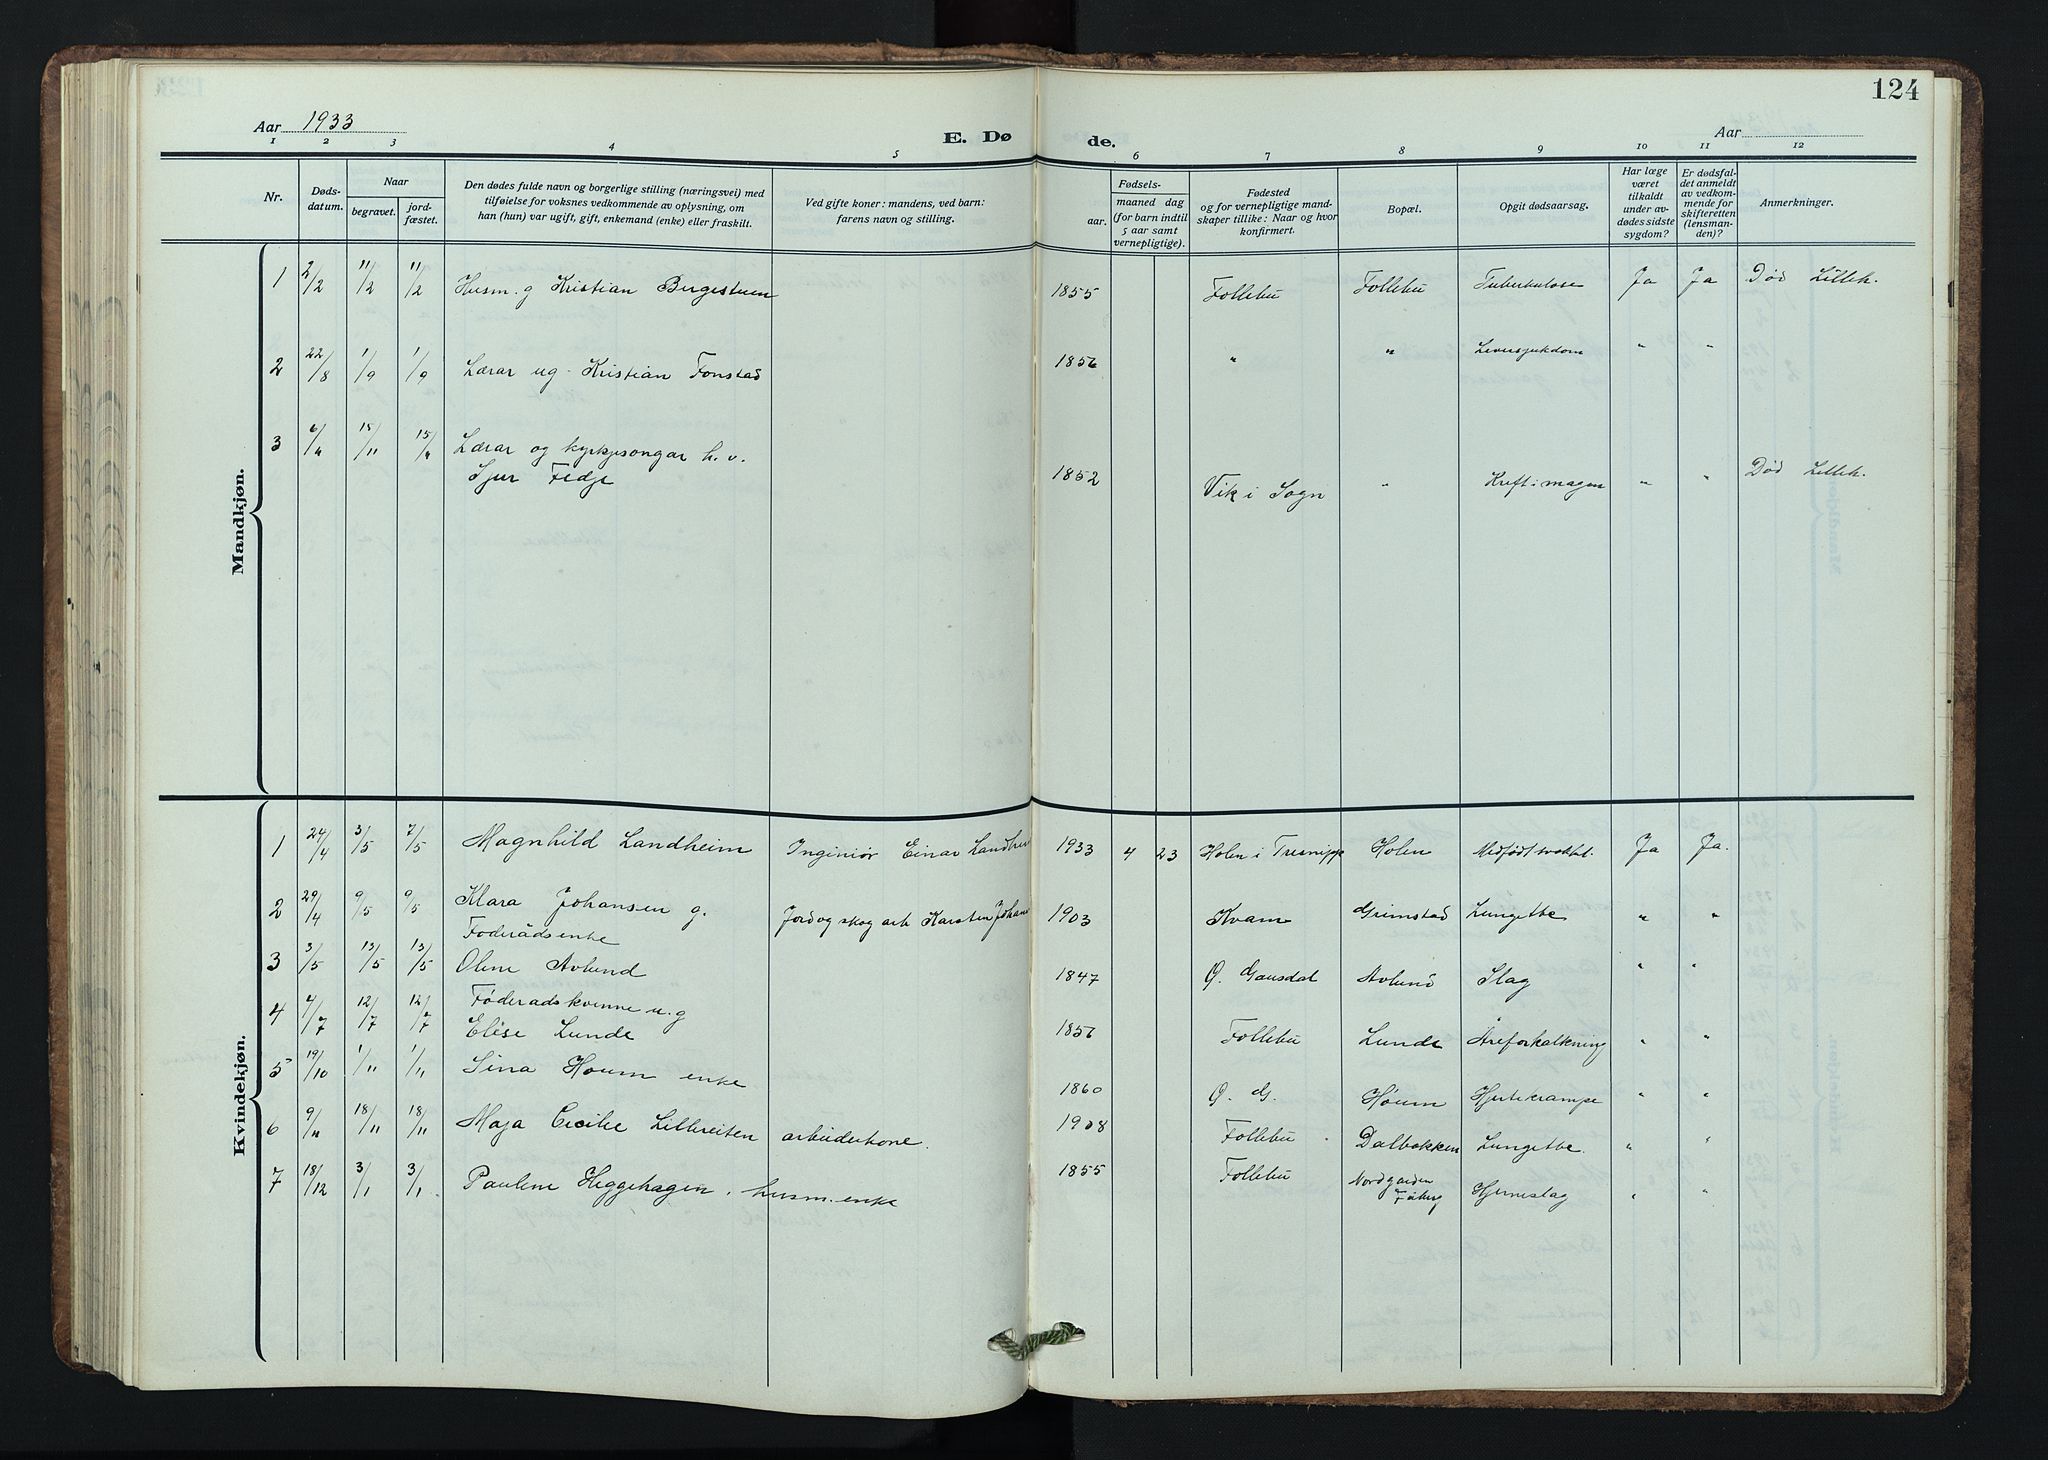 124
Aar 1933
E. Dø de.
Aar
1 2 3 4 5 6 7 8 9 10 11 12
Nr.
Døds-
datum.
Naar
begravet.
jord-
fæstet.
Den dødes fulde navn og borgerlige stilling (næringsvei) med
tilføielse for voksnes vedkommende av oplysning, om
han (hun) var ugift, gift, enkemand (enke) eller fraskilt.
Ved gifte koner: mandens, ved barn:
farens navn og stilling.
aar.
Fødsels-
maaned dag
(for barn indtil
5 aar samt
vernepligtige).
Fødested
og for vernepligtige mand-
skaper tillike: Naar og hvor
konfirmert.
Bopæl.
Opgit dødsaarsag.
Har læge
været
tilkaldt
under av-
dødes sidste
sygdom?
Er dødsfal-
det anmeldt
av vedkom-
mende for
skifteretten
(lensman-
den)?
Anmerkninger.
Mandkjøn.
1 2/2 11/2 11/2 Husm. g Kristian Bergestuen 1855 Follebu Follebu Tuberkulose Ja Ja Død Lilleh.
2 22/8 1/9 1/9 Lærar ug. Kristian Fonstad 1856 " " Leversjukdom " "
3 6/11 15/11 15/11 Lærar og kyrkjesongar h. v.
Sjur Fedje 1852 Vik i Sogn " Kreft i magen " " Død Lilleh.
Kvindekjøn.
1 24/4 3/5 7/5 Magnhild Landheim Inginiør Einar Landhei 1933 4 23 Holen i Holen Medfødt Ja Ja.
2 29/4 9/5 9/5 Klara Johansen g. Jord og skog arb Karsten Johans 1903 Kvam Grimstad Lungetbe " "
Foderådsenke
3 3/5 13/5 13/5 Olene Avlund 1847 Ø. Gausdal Avlund Slag " "
4 4/7 12/7 12/7 Føderadskvinne u.g
Elise Lunde 1856 Follebu Lunde Åreforkalkning " "
5 19/10 1/11 1/11 Sina Houm enke 1860 Ø. G. Høum Hjertekrampe " "
6 9/11 18/11 18/11 Maja Cecilie Lillereiten arbeiderkone. 1908 Follebu Dalbakken Lungetbe. " "
7 18/12 3/1 3/1. Pauline Heggehagen, husm. enke 1855 Follebu Nordgarden
Fåberg Hjerneslag " "